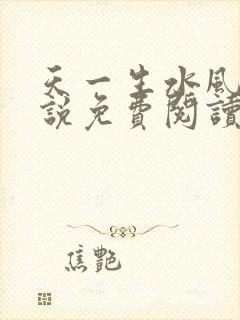 天一生水風
說免費閱讀
焦艷